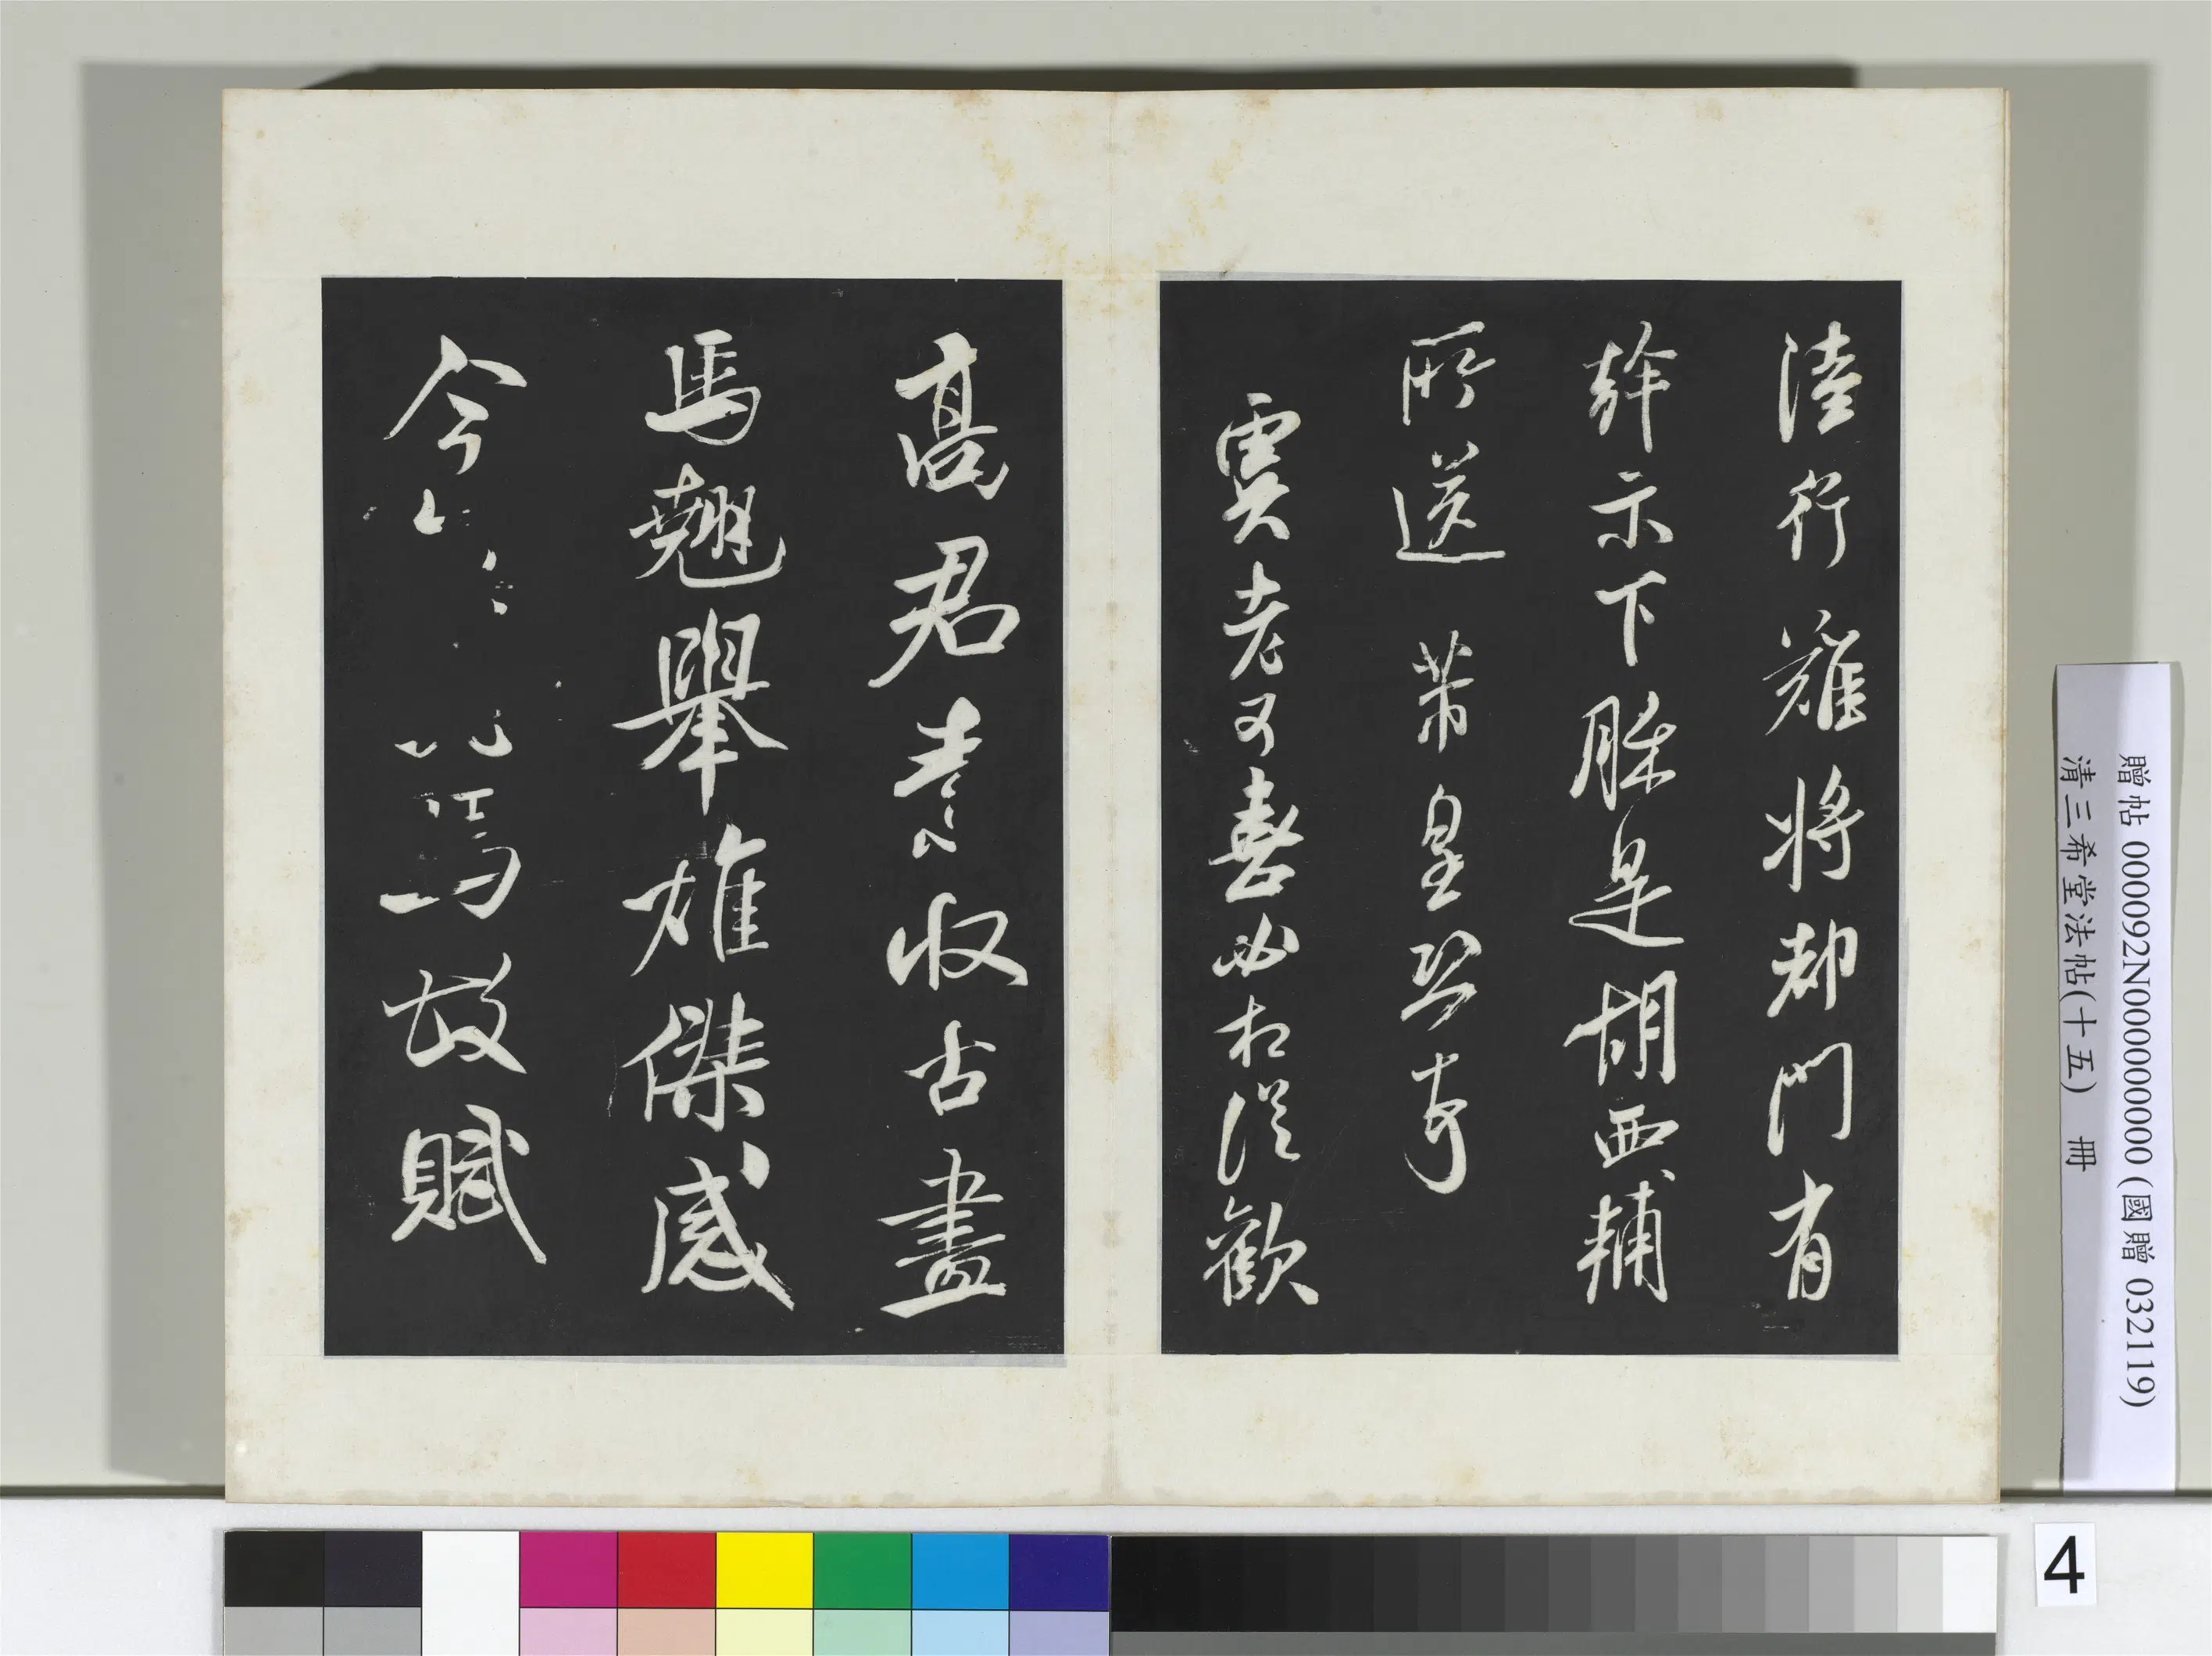 陸行難將却門有
幹示下酥是胡西輔
所送 芾皇恐
虞老可喜必相從歡
高君素收古畫
馬翹舉雄傑感
今 馬故賦
贈帖 000092N000000000 (國贈 032119)
清三希堂法帖(十五) 冊
4